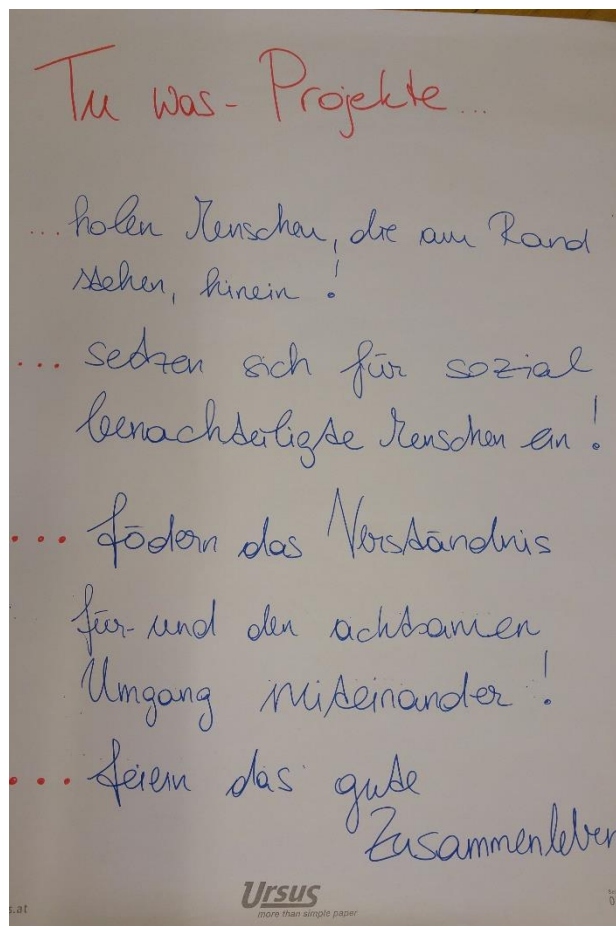 Tu was - Projekte...
... holen Menschen, die am Rand
stehen, hinein !
... setzen sich für sozial
benachteiligte Menschen ein !
... födern das Verständnis
für- und den achtsamen
Umgang miteinander !
... feiern das gute
Zusammenleben
s.at
Ursus
more than simple paper